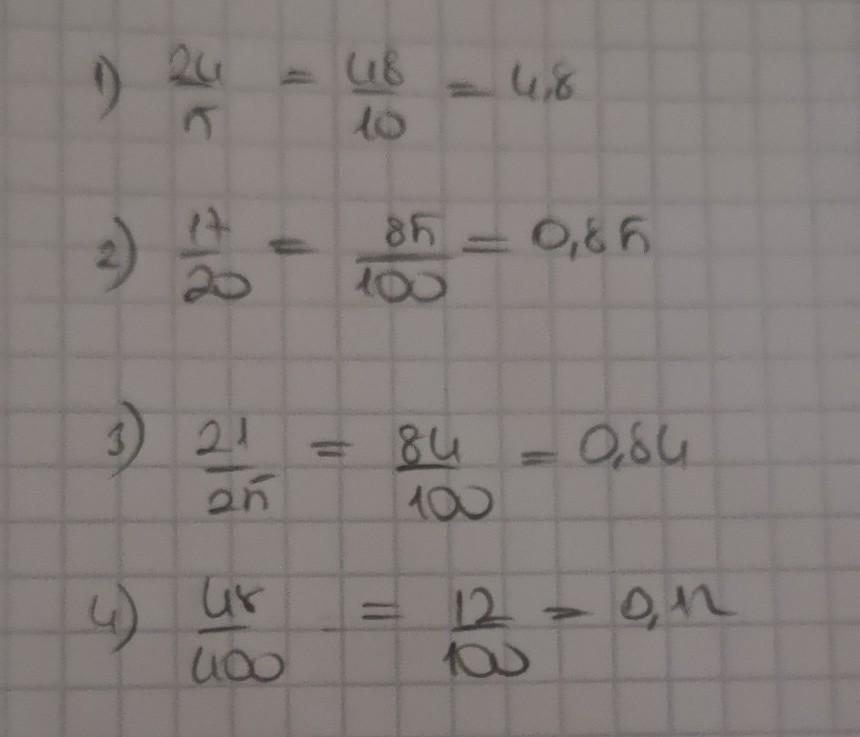 1) 24/5 = 48/10 = 4,8
2) 17/20 = 85/100 = 0,85
3) 21/25 = 84/100 = 0,84
4) 48/400 = 12/100 = 0,12